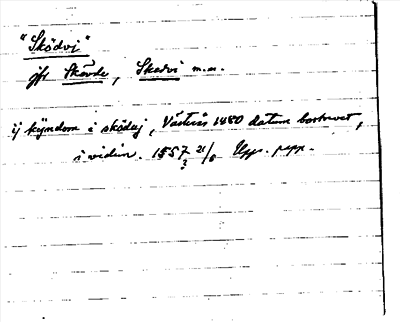 "Sködvi"
jfr Skövde, Skedvi m.m.
ij kyndom i sköduj, Västerås 1480 datum bortrivet,
i vidim. 1557 21/6 Upps. papp.
?